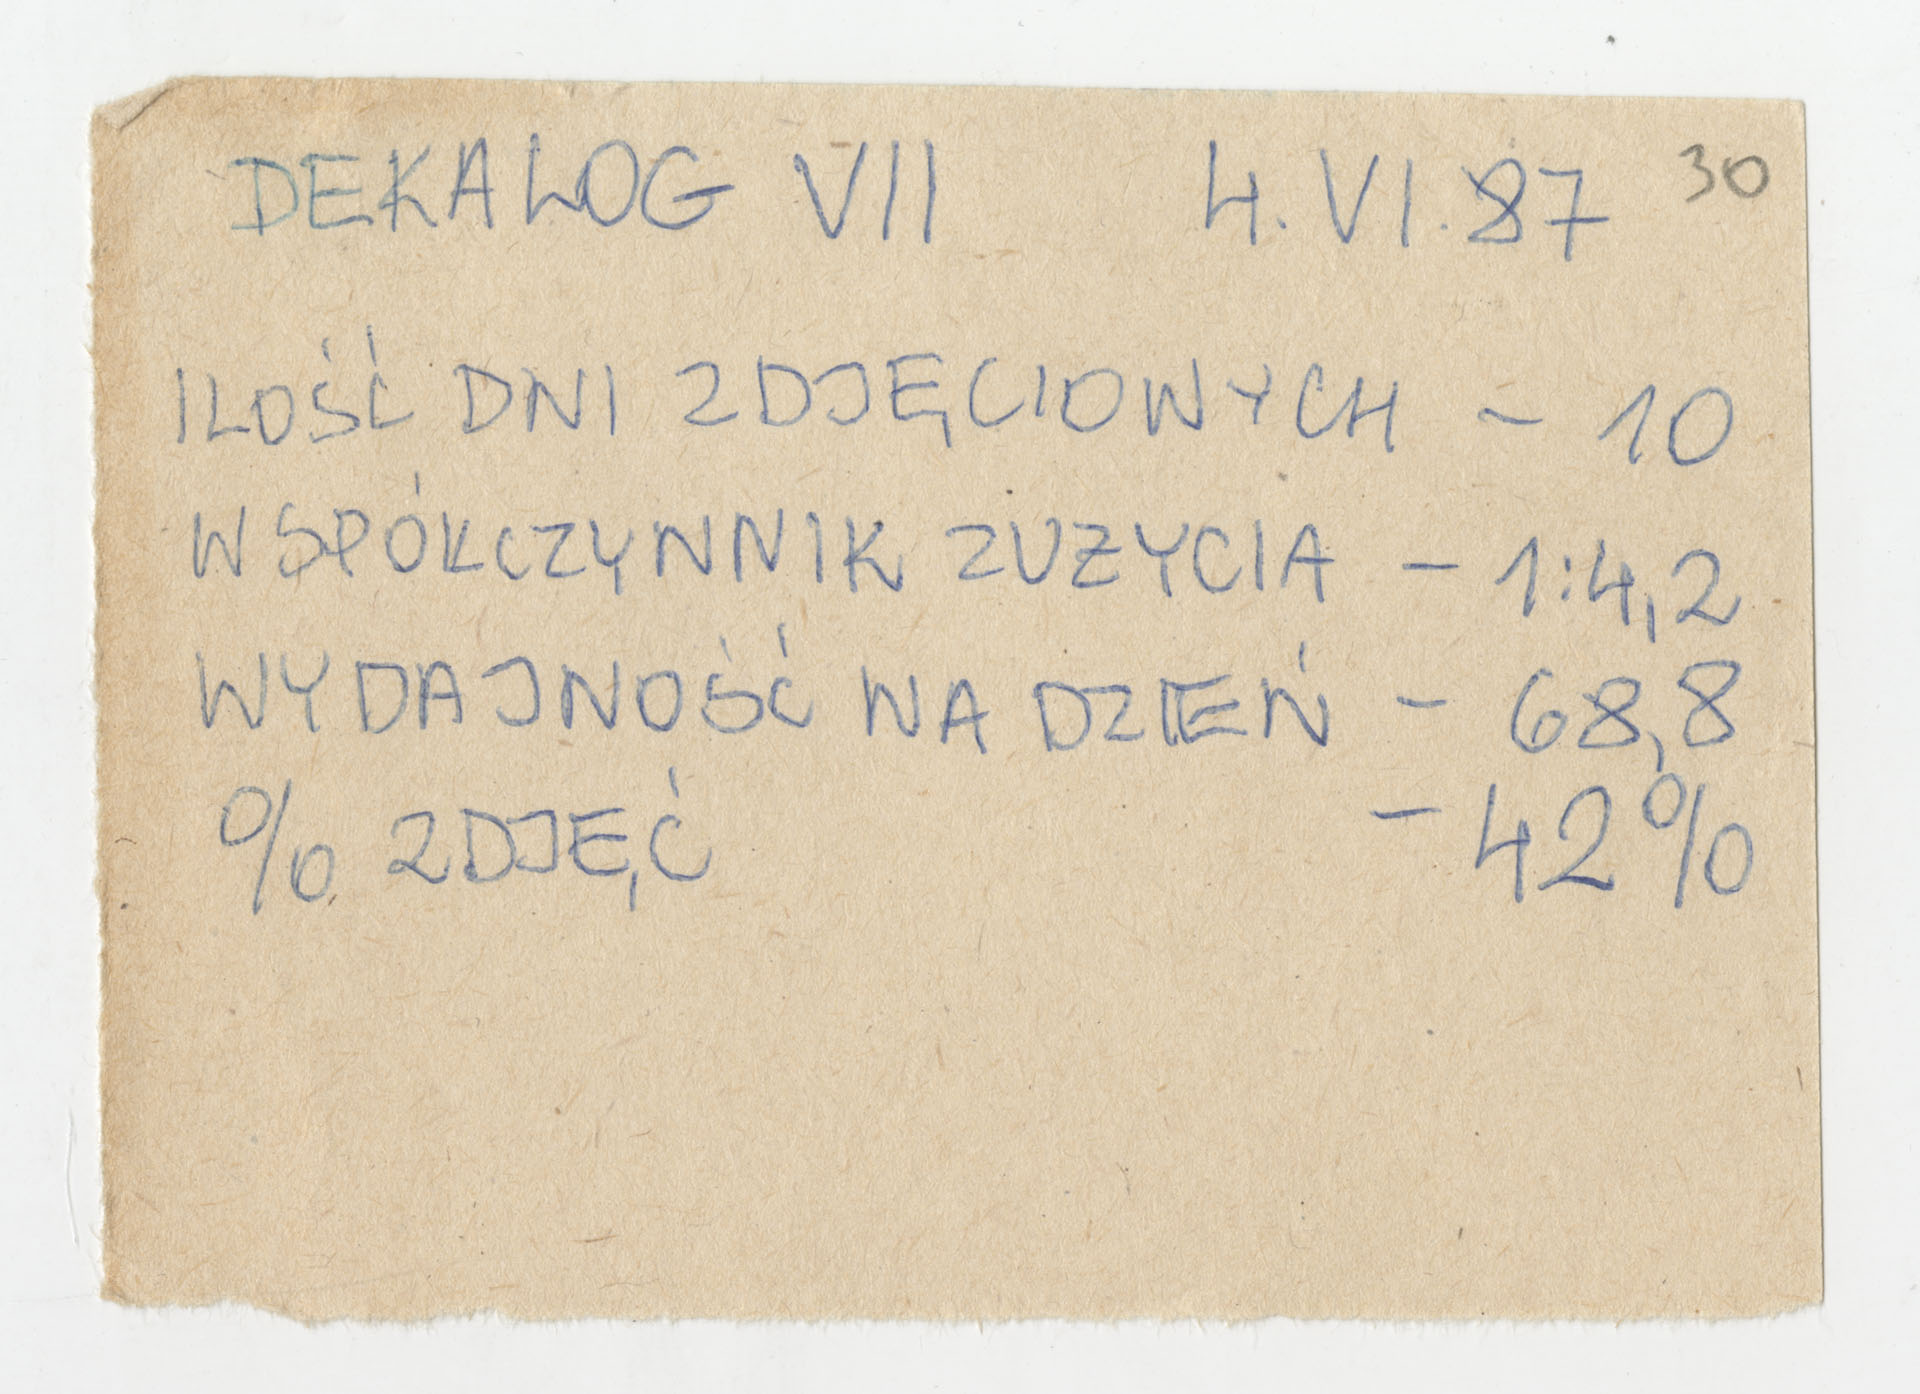 DEKALOG VII 4.VI.87 30
ILOŚĆ DNI ZDJĘCIOWYCH - 10
WSPÓŁCZYNNIK ZUŻYCIA - 1:4,2
WYDAJNOŚĆ NA DZIEŃ - 68,8
% ZDJĘĆ - 42%